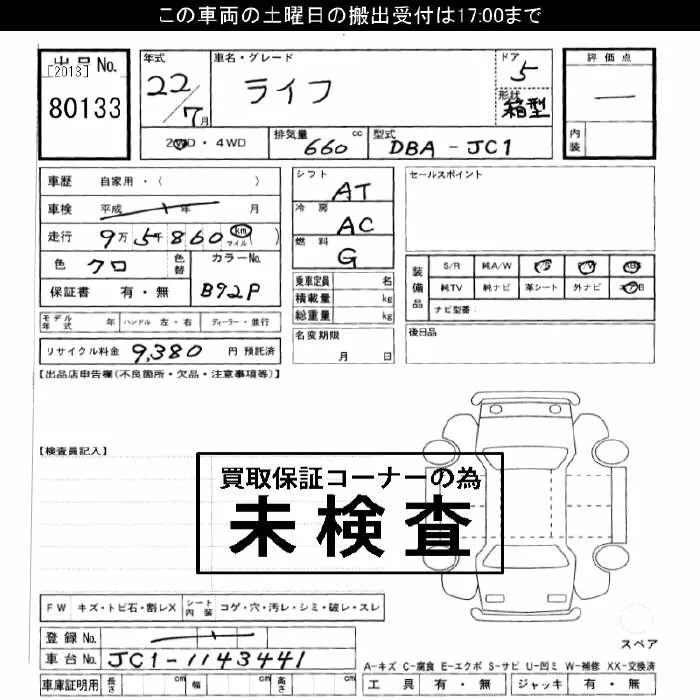 この車両の土曜日の搬出受付は17:00まで
出品 No.
[2013]
80133
年式
22/7月
車名・グレード
ライフ
ドア
5
形状
箱型
評価点
—
内装
2WD・4WD
排気量
660 cc
型式
DBA-JC1
車歴 自家用・( )
車検 平成 年 月
走行 9万5千860 km マイル ( )
色 クロ 色替
カラーNo.
B92P
保証書 有・無
モデル年式 年 ハンドル 左・右 ディーラー・並行
リサイクル料金 9,380 円 預託済
シフト
AT
冷房
AC
燃料
G
乗車定員 名
積載量 kg
総重量 kg
名変期限
月 日
セールスポイント
装備品
S/R 純A/W P/S P/W ABS
純TV 純ナビ 革シート 外ナビ エアB
ナビ型番:
後日品
【出品店申告欄(不良箇所・欠品・注意事項等)】
【検査員記入】
買取保証コーナーの為
未検査
FW キズ・トビ石・割レX シート内装 コゲ・穴・汚レ・シミ・破レ・スレ
登録 No.
車台 No. JC1-1143441
車庫証明用 長さ cm 幅 cm 高さ cm
スペア
A-キズ C-腐食 E-エクボ S-サビ U-凹ミ W-補修 XX-交換済
工具 有・無 ジャッキ 有・無